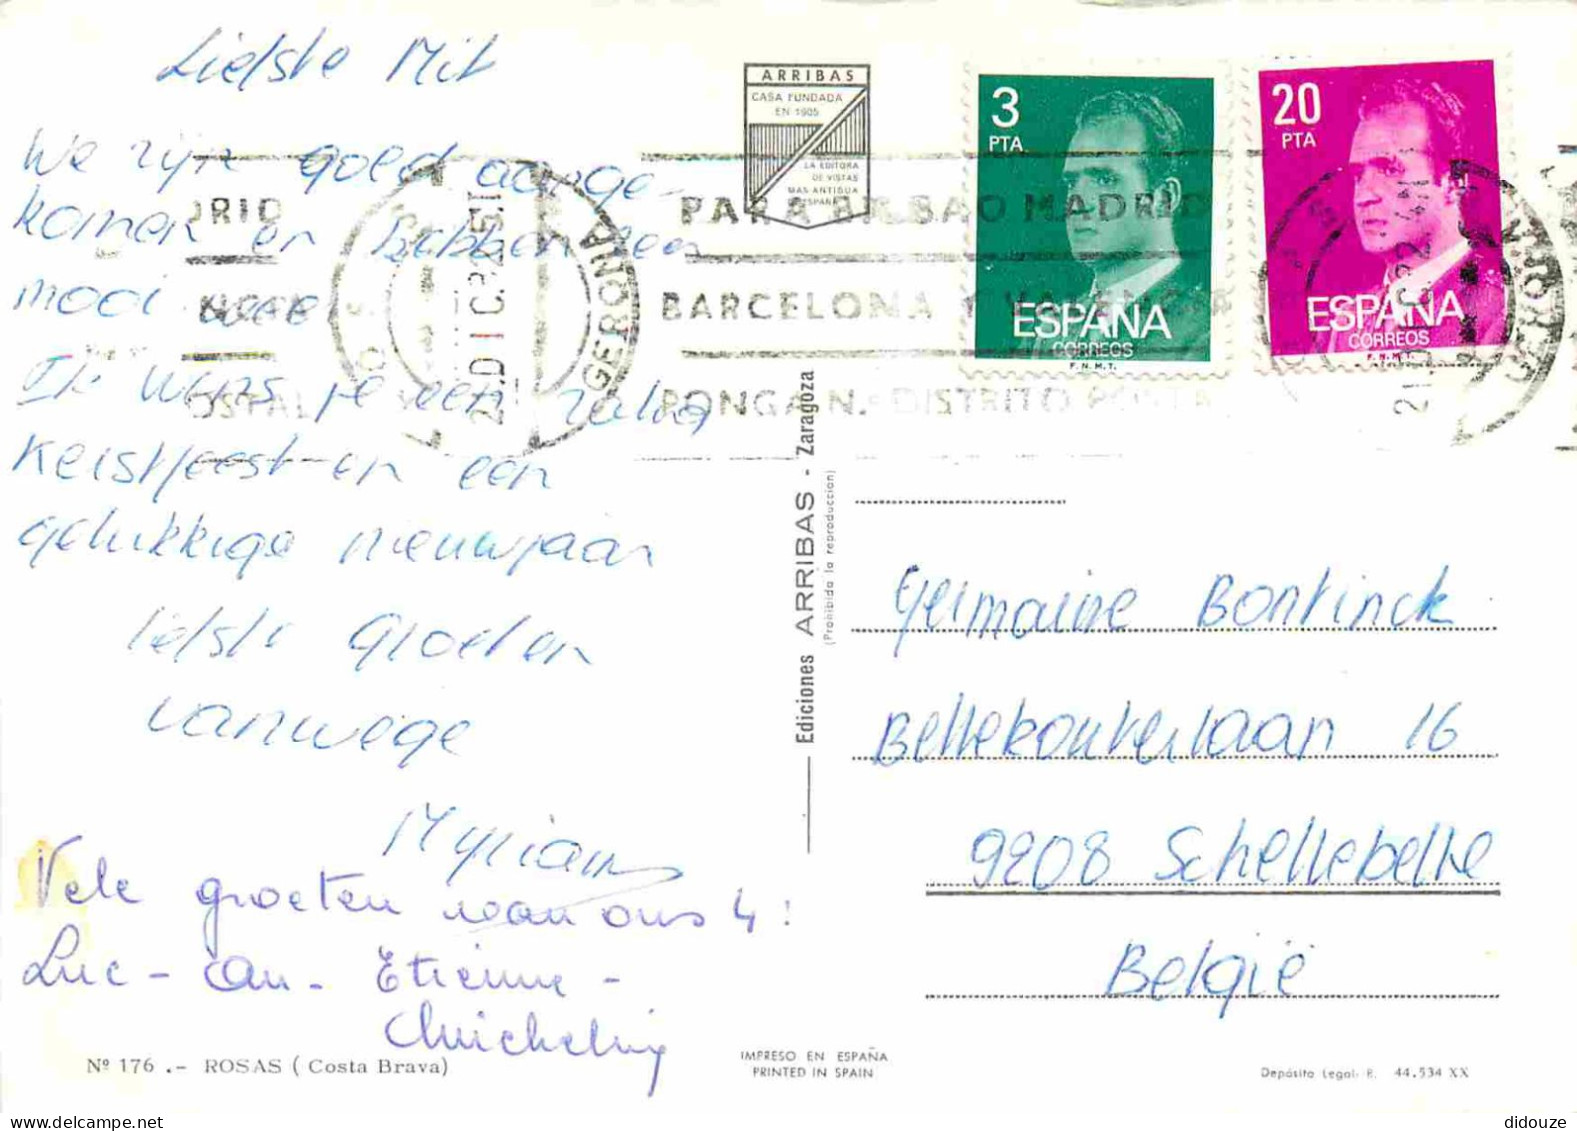 Liefste Mit
We zijn goed aange-
komen en hebben een
mooi weer
Ik wens je een zalig
Kerstfeest en een
gelukkige nieuwjaar
liefste Groeten
vanwege
Myriam
Vele groeten van ons 4!
Luc - An - Etienne -
Nº 176 .- ROSAS ( Costa Brava)
ARRIBAS
CASA FUNDADA
EN 1905
LA EDITORA
DE VISTAS
MAS ANTIGUA
ESPAÑA
3
PTA
ESPAÑA
CORREOS
F.N.M.T.
20
PTA
ESPAÑA
CORREOS
F.N.M.T.
PARA BILBAO MADRID
BARCELONA Y VALENCIA
PONGA N.º DISTRITO POSTAL
GERONA
GERONA
Ediciones ARRIBAS - Zaragoza
(Prohibida la reproduccion)
Germaine Bontinck
Bellekouterlaan 16
9208 Schellebelle
België
IMPRESO EN ESPAÑA
PRINTED IN SPAIN
Depósito Legal. B. 44.534 XX
didouze